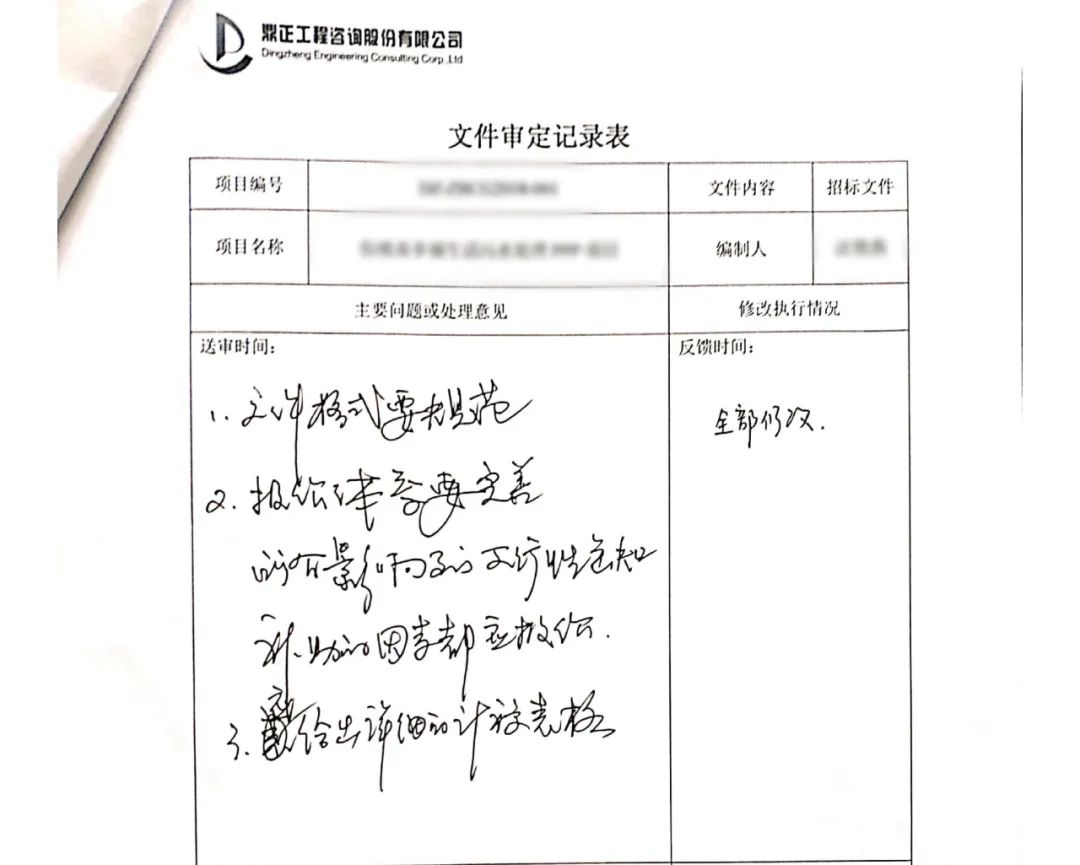 鼎正工程咨询股份有限公司
Dingzheng Engineering Consulting Corp.,Ltd
文件审定记录表
项目编号 文件内容 招标文件
项目名称 编制人
主要问题或处理意见 修改执行情况
送审时间: 反馈时间:
1. 文件格式要规范
全部修改.
2. 报价体系要完善
所有影响 可行性
补助的因素都应报价.
3. 给出详细的计算表格